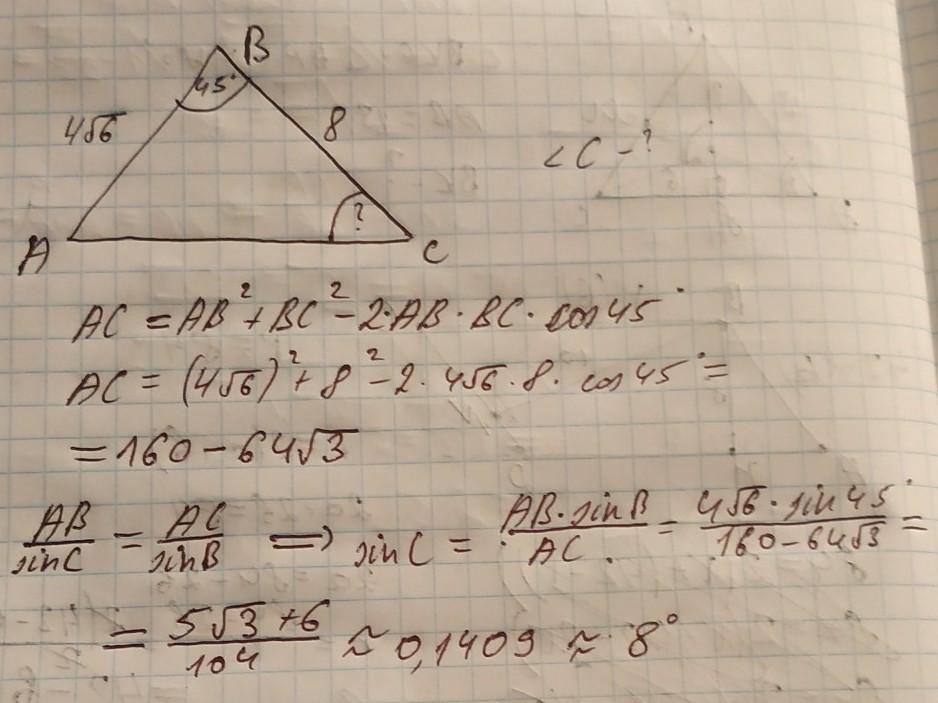 B
45°
4√6
8
∠C - ?
?
A
C
AC = AB² + BC² - 2·AB·BC·cos45°
AC = (4√6)² + 8² - 2·4√6·8·cos45° =
= 160 - 64√3
AB/sinC = AC/sinB ⟹ sinC = AB·sinB/AC = 4√6·sin45°/160-64√3 =
= 5√3+6/104 ≈ 0,1409 ≈ 8°